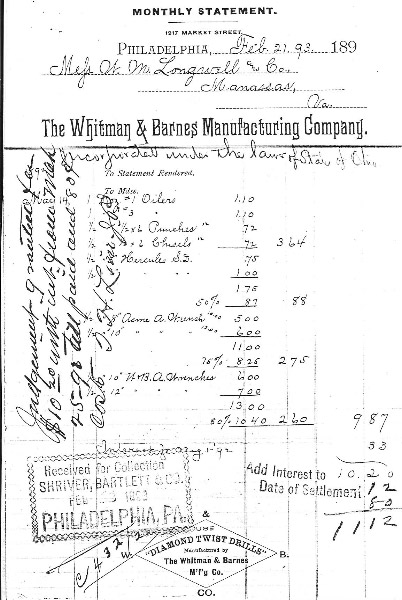 MONTHLY STATEMENT.
1217 MARKET STREET
PHILADELPHIA, Feb 21. 93. 189
Mess W. M. Longwell & Co.
Manassas,
Va.
The Whitman & Barnes Manufacturing Company.
Incorporated under the laws of State of Ohio
To Statement Rendered,
To Mdse.
#1 Oilers 1.10
" 3 " 1.10
1/2 " Punches " 72
1/2 " Chisels " 72 3 64
1/2 " Hercules S.D. 75
1/2 " " 1 00
1 75
50% 87 88
8" Acme A. Wrench 5 00
10" " " 6 00
11 00
75% 8 25 2 75
10" W.B.A. Wrenches 6 00
12" " 7 00
13.00
80% 10 40 2 60 9 87
33
Add Interest to 10.20
Date of Settlement 12
80
11 12
Judgement granted for
$10.20 with int. from
till paid and 80¢
cost
Received for Collection
SHRIVER, BARTLETT & CO.
FEB 1893
PHILADELPHIA, PA.
&
"DIAMOND TWIST DRILLS"
Manufactured by
The Whitman & Barnes
M'f'g Co.
B.
CO.